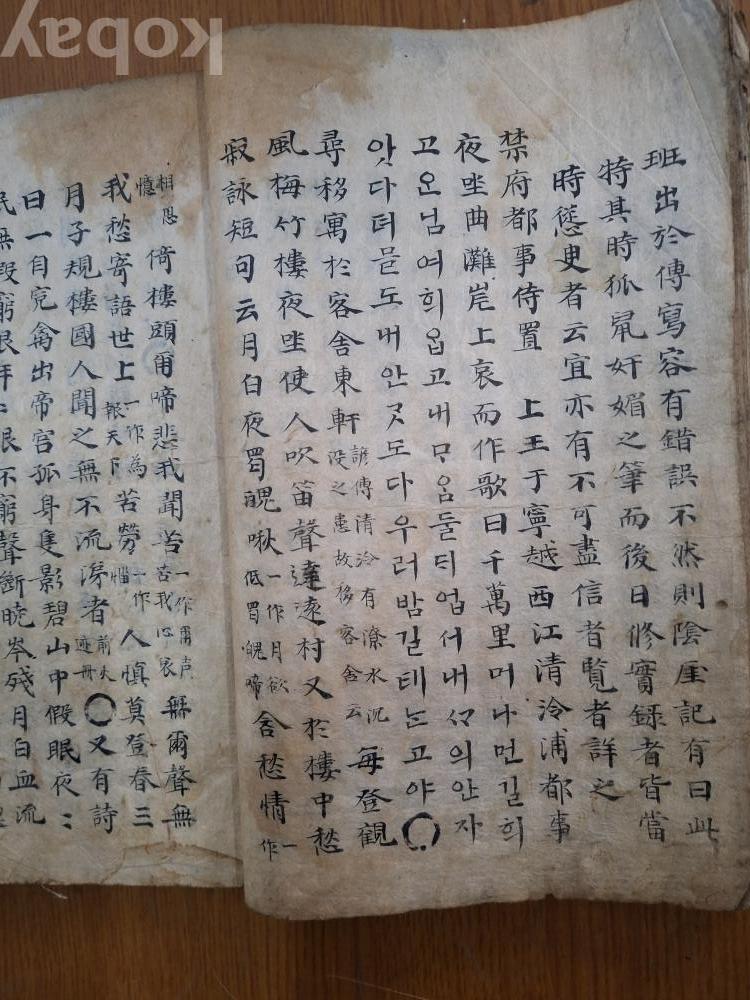 班出於傳寫容有錯誤不然則陰厓記有曰此
特其時狐鼠奸媚之筆而後日修實錄者皆當
時慫史者云宜亦有不可盡信者覽者詳之
禁府都事侍置 上王于寧越西江清冷浦都事
夜坐曲灘岸上哀而作歌曰千萬里머나먼길희
고온님여희옵고내ᄆᆞ음둘듸업서내ᄉᆡ의안자
앗다뎌믈도내안ᄀᆞᆺ도다우러밤길테는고야○
尋移寓於客舍東軒 諺傳清冷有潦水沉沒之患故移客舍云 每登觀
風梅竹樓夜坐使人吹笛聲達遠村又於樓中愁
寂詠短句云月白夜蜀魄啾 一作月欲低蜀魄啼 含愁情 一作
相思憶 倚樓頭爾啼悲我聞苦 一作爾声苦我心哀 無爾聲無
我愁寄語世上 一作為報天下 苦勞 一作惱 人慎莫登春三
月子規樓國人聞之無不流涕者 ○又有詩
曰一自冤禽出帝宮孤身隻影碧山中假眠夜〻
眠無假窮恨年〻恨不窮聲斷曉岑殘月白血流
kobay